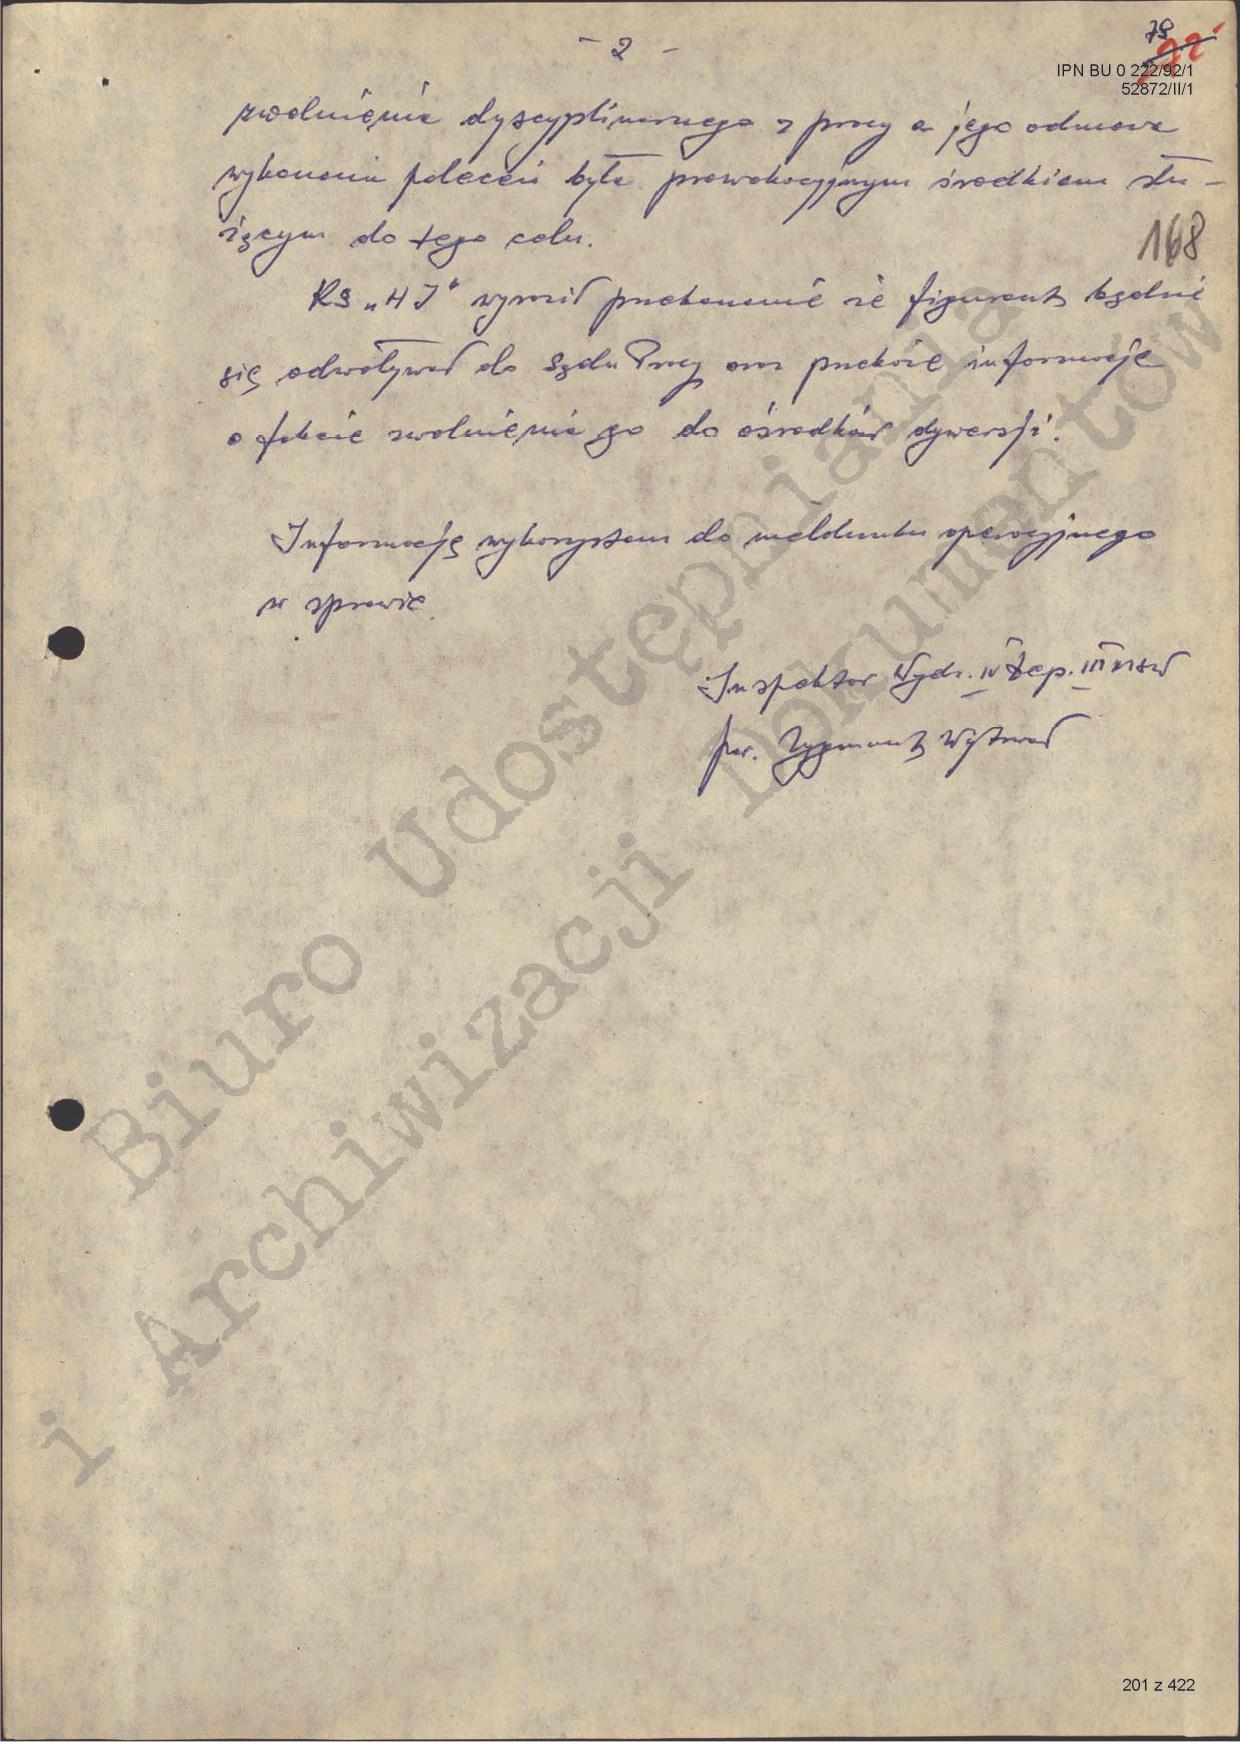 - 2 -
79
IPN BU 0 222/92/1
52872/II/1
zwolnienia dyscyplinarnego z pracy a jego odmowa
wykonania poleceń była prowokacyjnym środkiem słu-
żącym do tego celu.
168
KS "HJ" wyraził przekonanie że figurant będzie
się odwoływał do Sądu Pracy oraz przekaże informację
o fakcie zwolnienia go do ośrodków dywersji.
Informację wykorzystam do meldunku operacyjnego
w sprawie.
Inspektor Wydz. IV Dep. III MSW
por. Zygmunt
Biuro Udostępniania
i Archiwizacji Dokumentów
201 z 422